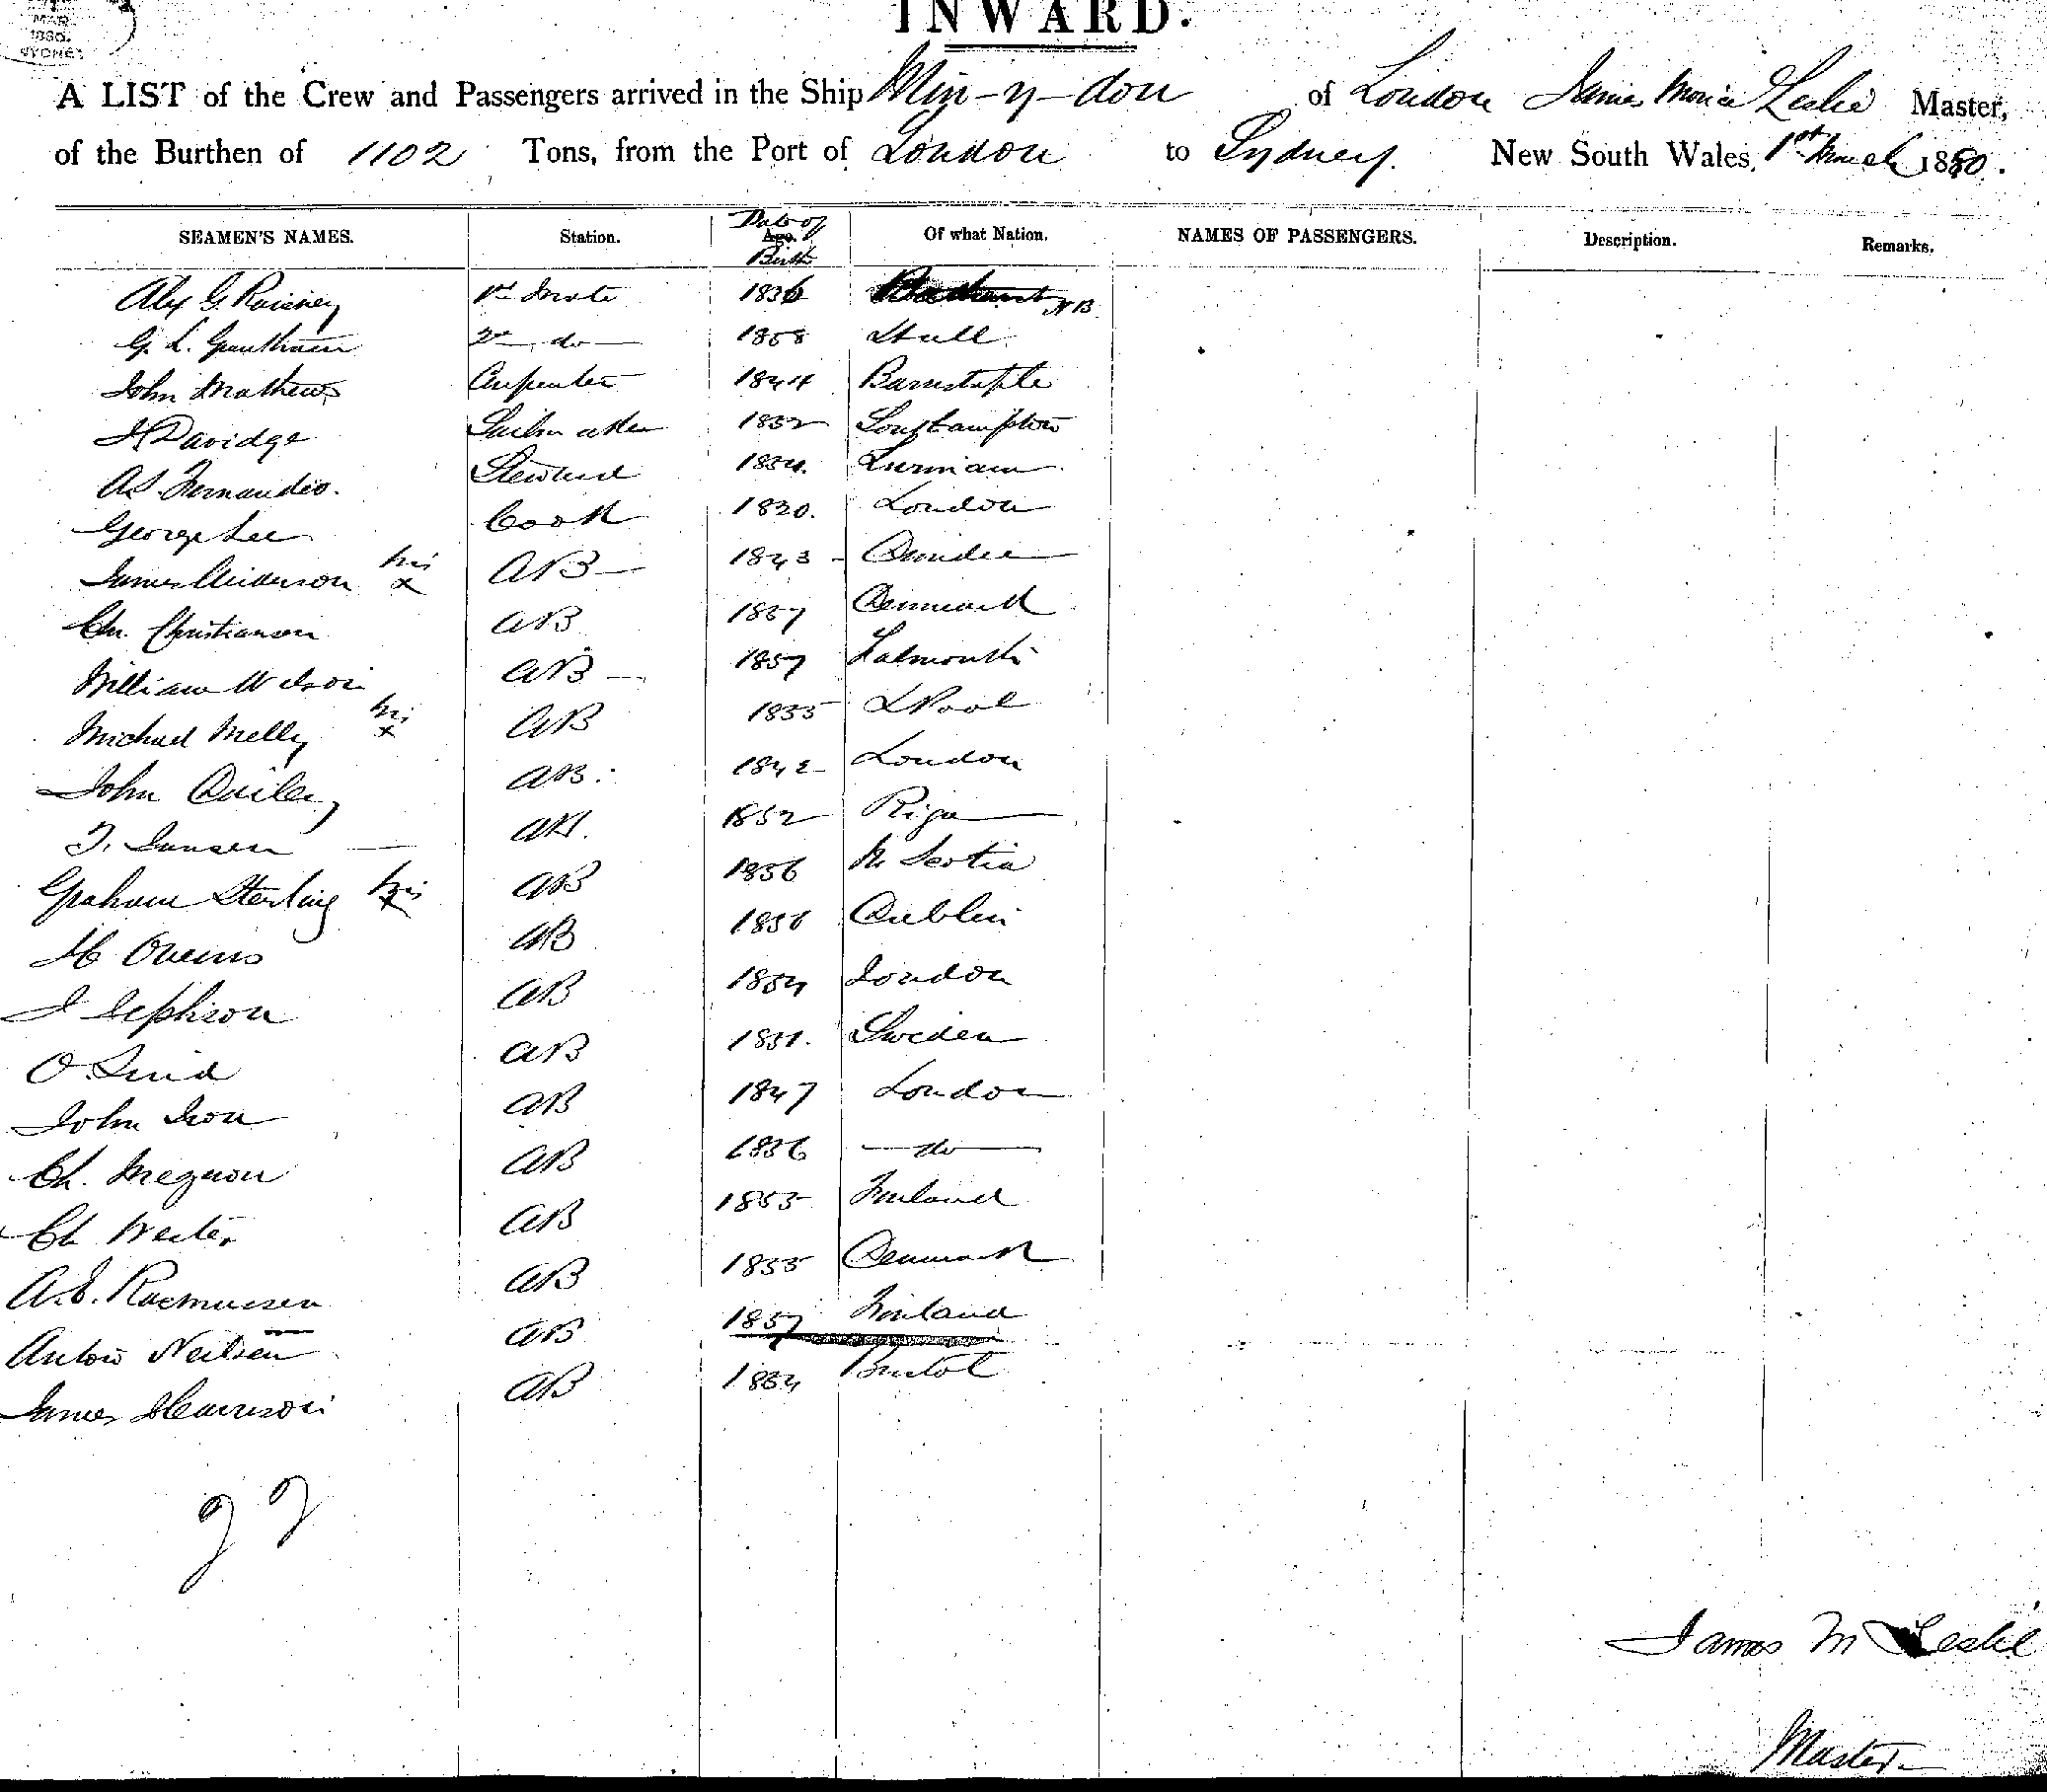 MAR
1880.
SYDNEY
INWARD.
A LIST of the Crew and Passengers arrived in the Ship Min-y-don of London James Leslie Master,
of the Burthen of 1102 Tons, from the Port of London to Sydney. New South Wales, 1st March 1880.
SEAMEN'S NAMES. Station. Date of Age. Birth Of what Nation. NAMES OF PASSENGERS. Description. Remarks.
Alex G. 1st Mate 1836 N B.
G. L. 2nd do 1858 Hull.
John Mathews Carpenter 1844 Barnstaple
Davidge Sailmaker 1832 Southampton
Steward
George Lee Cook 1820. London
James Anderson his x AB 1843 Dundee
Chr. Christiansen AB 1857 Denmark
William Wilson AB 1857 Falmouth
Michael Melly his x AB 1855 LPool
John AB. 1842 London
Jansen AB. 1852 Riga
Graham Sterling his x AB 1856 N. Scotia
Owens AB Dublin
J Jephson AB London
O. Lind AB 1851. Sweden
John AB 1847 London
Ch. AB 1856 do
Ch AB 1855 Finland
A. E. Rasmussen AB 1855 Denmark
Anton Neilsen AB 1857 Finland
James Harrison AB 1854 Bristol
James M Leslie
Master